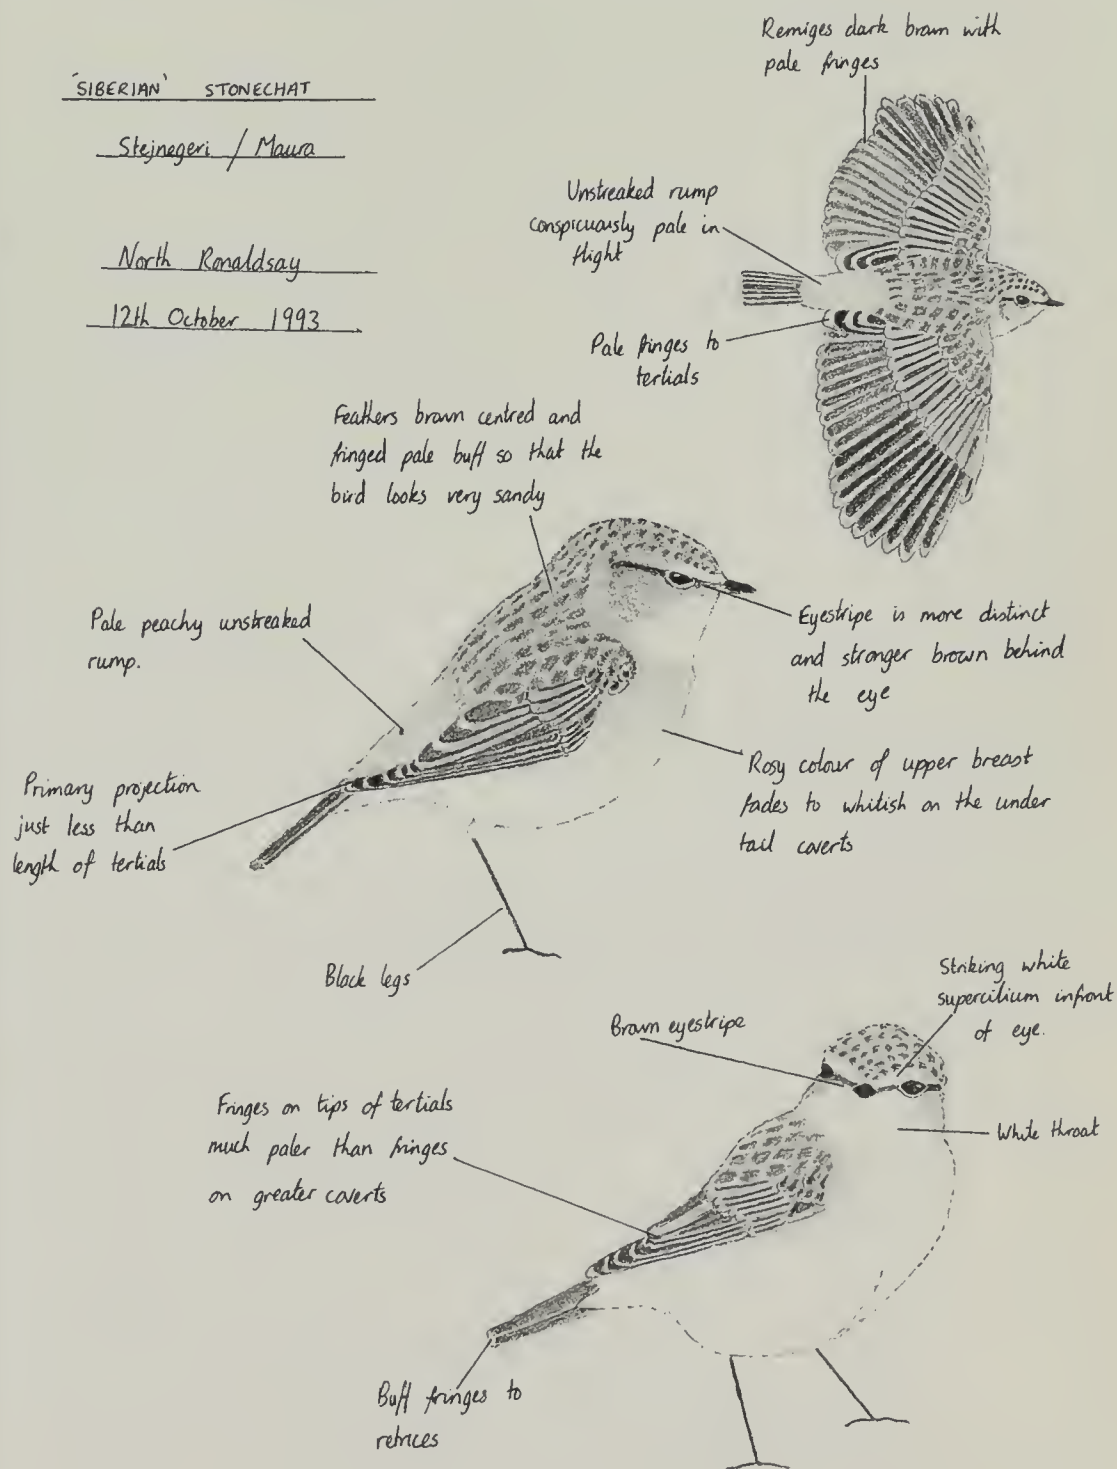 'SIBERIAN' STONECHAT
Stejnegeri / Maura
North Ronaldsay
12th October 1993
Remiges dark brown with
pale fringes
Unstreaked rump
conspicuously pale in
flight
Pale fringes to
tertials
Feathers brown centred and
fringed pale buff so that the
bird looks very sandy
Pale peachy unstreaked
rump.
Eyestripe is more distinct
and stronger brown behind
the eye
Primary projection
just less than
length of tertials
Rosy colour of upper breast
fades to whitish on the under
tail coverts
Black legs
Striking white
supercilium infront
of eye.
Brown eyestripe
White throat
Fringes on tips of tertials
much paler than fringes
on greater coverts
Buff fringes to
retrices